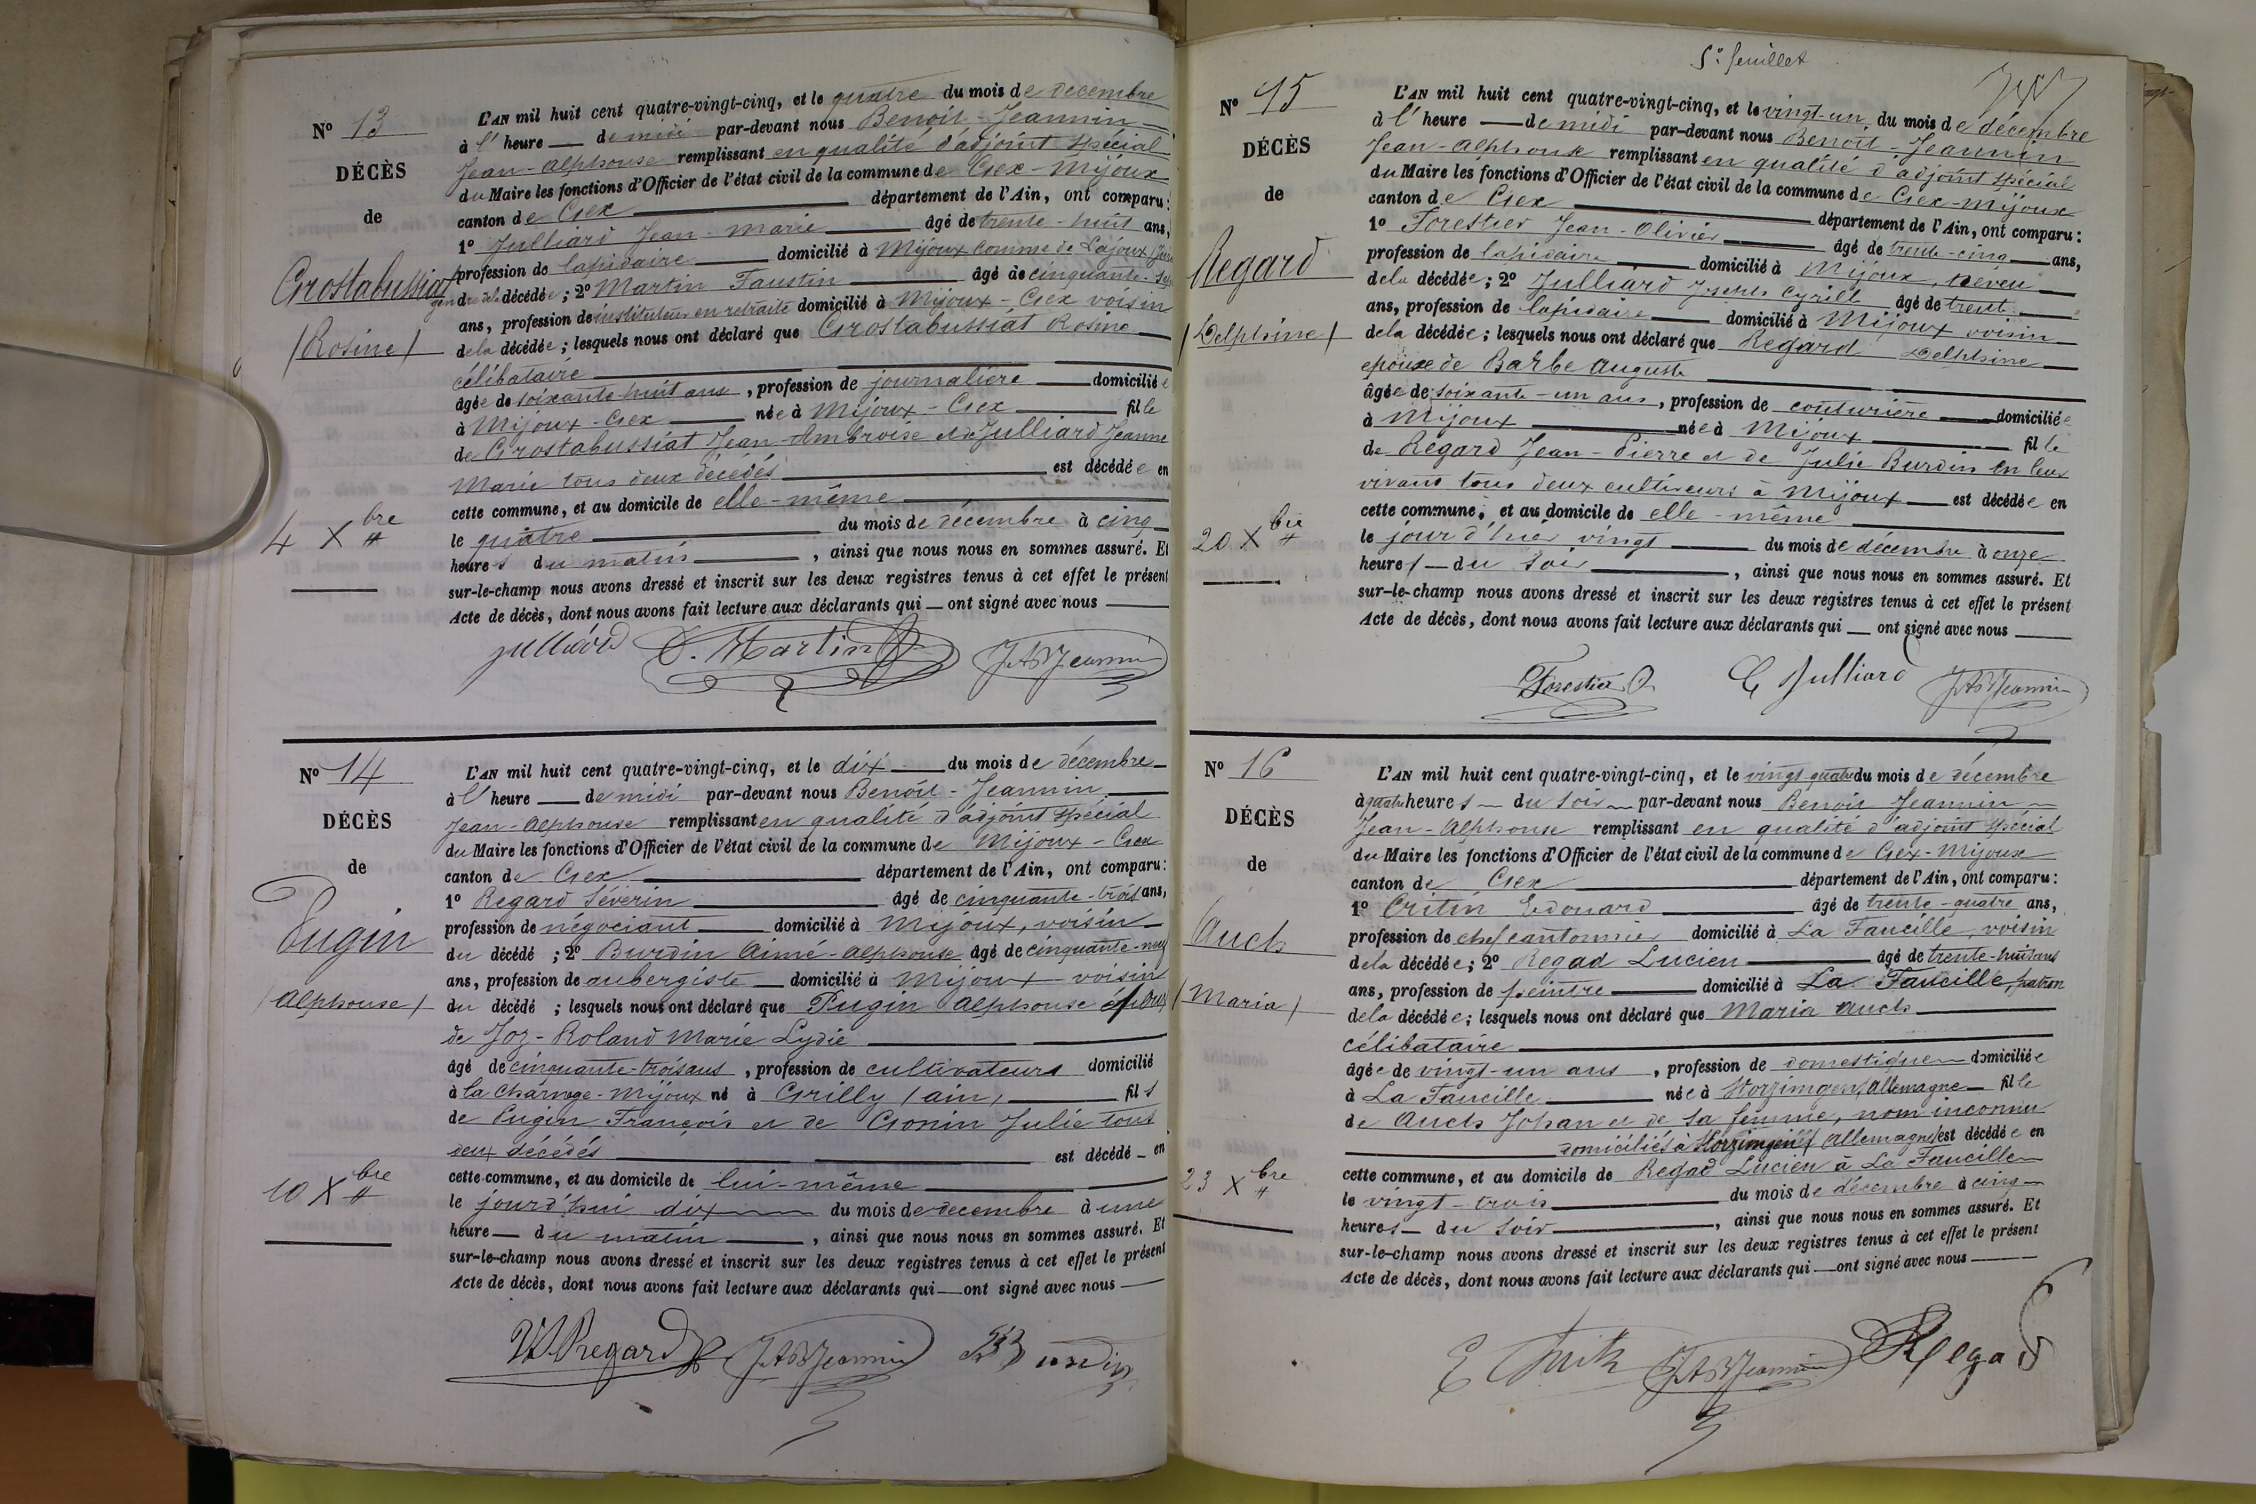 Nº 13
DÉCÈS
de
Grostabussiat
(Rosine)
4 Xbre
L'AN mil huit cent quatre-vingt-cinq, et le quatre du mois de décembre
à l'heure — de midi par-devant nous Benoit-Jeannin
Jean-Alphonse remplissant en qualité d'adjoint spécial
du Maire les fonctions d'Officier de l'état civil de la commune de Gex-Mijoux
canton de Gex département de l'Ain, ont comparu:
1º Julliard Jean-Marie âgé de trente-huit ans,
profession de lapidaire domicilié à Mijoux comme de Lajoux (Jura
de la décédée; 2º Martin Faustin âgé de cinquante-sept
ans, profession de instituteur en retraite domicilié à Mijoux-Gex voisin
de la décédée; lesquels nous ont déclaré que Grostabussiat Rosine
célibataire
âgée de soixante-huit ans, profession de journalière domiciliée
à Mijoux-Gex née à Mijoux-Gex fille
de Grostabussiat Jean-Ambroise et de Julliard Jeanne
Marie tous deux décédés est décédée en
cette commune, et au domicile de elle-même
le quatre du mois de décembre à cinq
heures du matin, ainsi que nous nous en sommes assuré. Et
sur-le-champ nous avons dressé et inscrit sur les deux registres tenus à cet effet le présent
Acte de décès, dont nous avons fait lecture aux déclarants qui — ont signé avec nous
Julliard F. Martin JABJeannin
Nº 14
DÉCÈS
de
Pugin
(Alphonse)
10 Xbre
L'AN mil huit cent quatre-vingt-cinq, et le dix du mois de décembre
à l'heure — de midi par-devant nous Benoit-Jeannin
Jean-Alphonse remplissant en qualité d'adjoint spécial
du Maire les fonctions d'Officier de l'état civil de la commune de Mijoux-Gex
canton de Gex département de l'Ain, ont comparu:
1º Regard Séverin âgé de cinquante-trois ans,
profession de négociant domicilié à Mijoux, voisin
du décédé; 2º Burdin Aimé-Alphonse âgé de cinquante-neuf
ans, profession de aubergiste domicilié à Mijoux voisin
du décédé; lesquels nous ont déclaré que Pugin Alphonse époux
de Joz-Roland Marie Lydie
âgé de cinquante-trois ans, profession de cultivateurs domicilié
à la Charnage-Mijoux né à Grilly (ain) fils
de Pugin François et de Gonin Julie tous
deux décédés est décédé en
cette commune, et au domicile de lui-même
le jourd'hui dix du mois de decembre à une
heure — du matin, ainsi que nous nous en sommes assuré. Et
sur-le-champ nous avons dressé et inscrit sur les deux registres tenus à cet effet le présent
Acte de décès, dont nous avons fait lecture aux déclarants qui — ont signé avec nous
Regard JABJeannin
5e feuillet
Nº 15
DÉCÈS
de
Regard
(Delphine)
20 Xbre
L'AN mil huit cent quatre-vingt-cinq, et le vingt-un du mois de décembre
à l'heure — de midi par-devant nous Benoit-Jeannin
Jean-Alphonse remplissant en qualité d'adjoint spécial
du Maire les fonctions d'Officier de l'état civil de la commune de Gex-Mijoux
canton de Gex département de l'Ain, ont comparu:
1º Forestier Jean-Olivier âgé de trente-cinq ans,
profession de lapidaire domicilié à Mijoux, neveu
de la décédée; 2º Julliard Joseph Cyrille âgé de trente
ans, profession de lapidaire domicilié à Mijoux voisin
de la décédée; lesquels nous ont déclaré que Regard Delphine
epouse de Barbe Auguste
âgée de soixante-un ans, profession de couturière domiciliée
à Mijoux née à Mijoux fille
de Regard Jean-Pierre et de Julie Burdin en leur
vivant tous deux cultiveurs à Mijoux est décédée en
cette commune, et au domicile de elle-même
le jour d'hier vingt du mois de décembre à onze
heures — du soir, ainsi que nous nous en sommes assuré. Et
sur-le-champ nous avons dressé et inscrit sur les deux registres tenus à cet effet le présent
Acte de décès, dont nous avons fait lecture aux déclarants qui — ont signé avec nous
Forestier C Julliard JABJeannin
Nº 16
DÉCÈS
de
Auch
(Maria)
23 Xbre
L'AN mil huit cent quatre-vingt-cinq, et le vingt quatre du mois de décembre
à quatre heures — du soir par-devant nous Benoit Jeannin
Jean-Alphonse remplissant en qualité d'adjoint spécial
du Maire les fonctions d'Officier de l'état civil de la commune de Gex-Mijoux
canton de Gex département de l'Ain, ont comparu:
1º Critin Edouard âgé de trente-quatre ans,
profession de chef cantonnier domicilié à La Faucille voisin
de la décédée; 2º Regad Lucien âgé de trente-huit ans
ans, profession de peintre domicilié à La Faucille, patron
de la décédée; lesquels nous ont déclaré que Maria Auch
célibataire
âgée de vingt-un ans, profession de domestique domiciliée
à La Faucille née à Horzimgen, Allemagne fille
de Auch Johan et de sa femme, nom inconnu
domiciliés à Horzimgen (Allemagne) est décédée en
cette commune, et au domicile de Regad Lucien à La Faucille
le vingt-trois du mois de décembre à cinq
heures — du soir, ainsi que nous nous en sommes assuré. Et
sur-le-champ nous avons dressé et inscrit sur les deux registres tenus à cet effet le présent
Acte de décès, dont nous avons fait lecture aux déclarants qui — ont signé avec nous
JABJeannin Regad